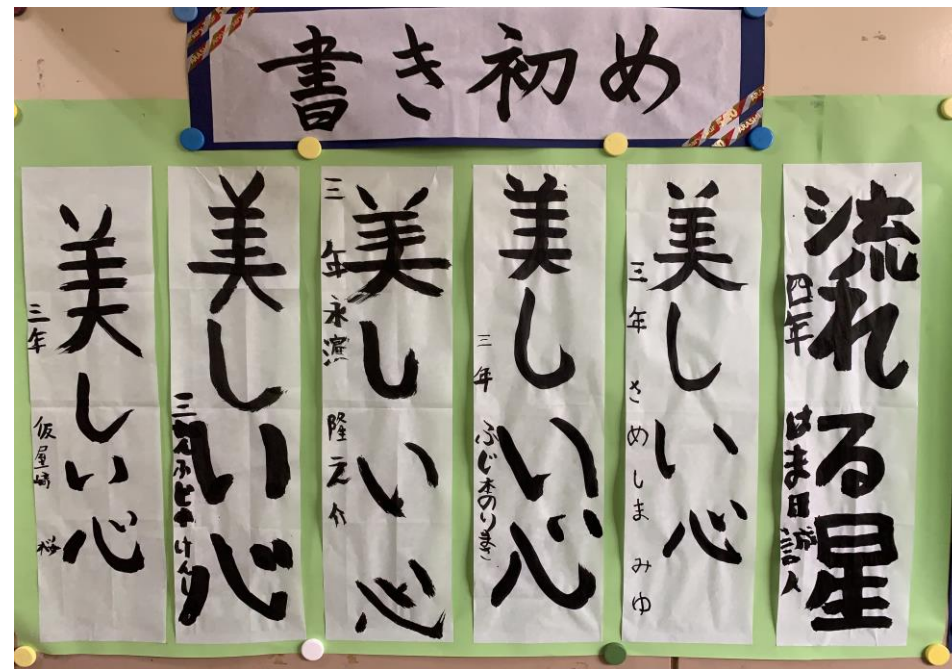 書き初め
流れる星
四年 はま田 誠人
美しい心
三年 さめしま みゆ
美しい心
三年 ふじ木のりまさ
美しい心
三年 永濵 隆之介
美しい心
美しい心
三年 仮屋崎 桜